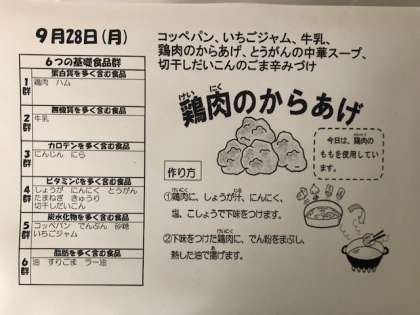 9月28日(月)
コッペパン、いちごジャム、牛乳、
鶏肉のからあげ、とうがんの中華スープ、
切干しだいこんのごま辛みづけ
6つの基礎食品群
蛋白質を多く含む食品
1群
鶏肉 ハム
無機質を多く含む食品
2群
牛乳
カロテンを多く含む食品
3群
にんじん にら
ビタミンCを多く含む食品
4群
しょうが にんにく とうがん
たまねぎ きゅうり
切干しだいこん
炭水化物を多く含む食品
5群
コッペパン でんぷん 砂糖
いちごジャム
脂肪を多く含む食品
6群
油 すりごま ラー油
けい にく
鶏肉のからあげ
今日は、鶏肉の
ももを使用してい
ます。
作り方
①鶏肉に、しょうが汁、にんにく、
塩、こしょうで下味をつけます。
②下味をつけた鶏肉に、でん粉をまぶし、
熱した油で揚げます。